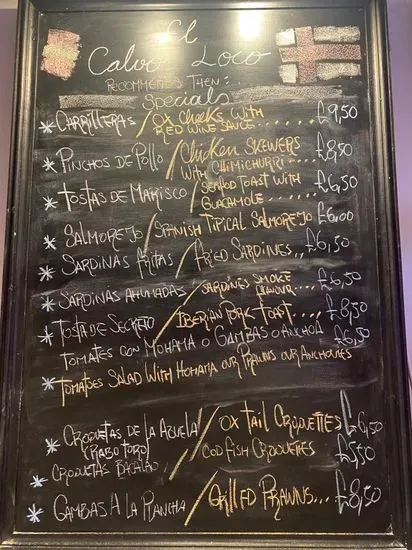 El
Calvo Loco
RECOMMENDS THEN:
Specials
* CARRILLERAS / OX CHEEKS WITH RED WINE SAUCE....... £9,50
* PINCHOS DE POLLO / CHICKEN SKEWERS WITH CHIMICHURRI... £8,50
* TOSTAS DE MARISCO / SEAFOOD TOAST WITH GUACAMOLE..... £6,50
* SALMOREJO / SPANISH TIPICAL SALMOREJO £6,00
* SARDINAS FRITAS / FRIED SARDINES... £6,50
* SARDINAS AHUMADAS / SARDINES SMOKE FLAVOUR...... £6,50
* TOSTA DE SECRETO / IBERIAN PORK TOAST.... £8,50
TOMATES CON MOHAMA O GAMBAS O ANCHOA £6,50
* TOMATSES SALAD WITH MOHAMA OUR PRAWNS OUR ANCHOVIES
* CROQUETAS DE LA ABUELA / OX TAIL CROQUETTES £6,50
(RABO TORO)
* CROQUETAS BACALAO / COD FISH CROQUETTES £5,50
* GAMBAS A LA PLANCHA / GRILLED PRAWNS... £8,50